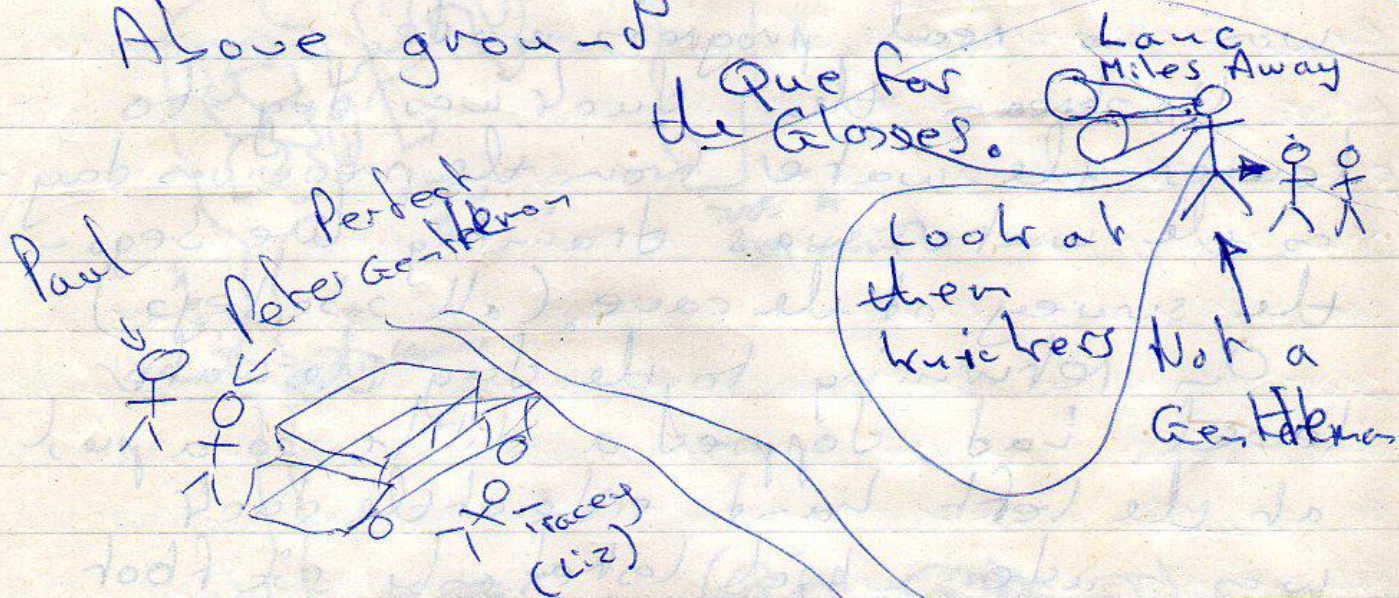 Above ground
Que for
the Glosses.
Lanc
Miles Away
Paul
Perfect
Peter Gentleman
Look at
them
knickers
Not a
Gentleman
Tracey
(Liz)